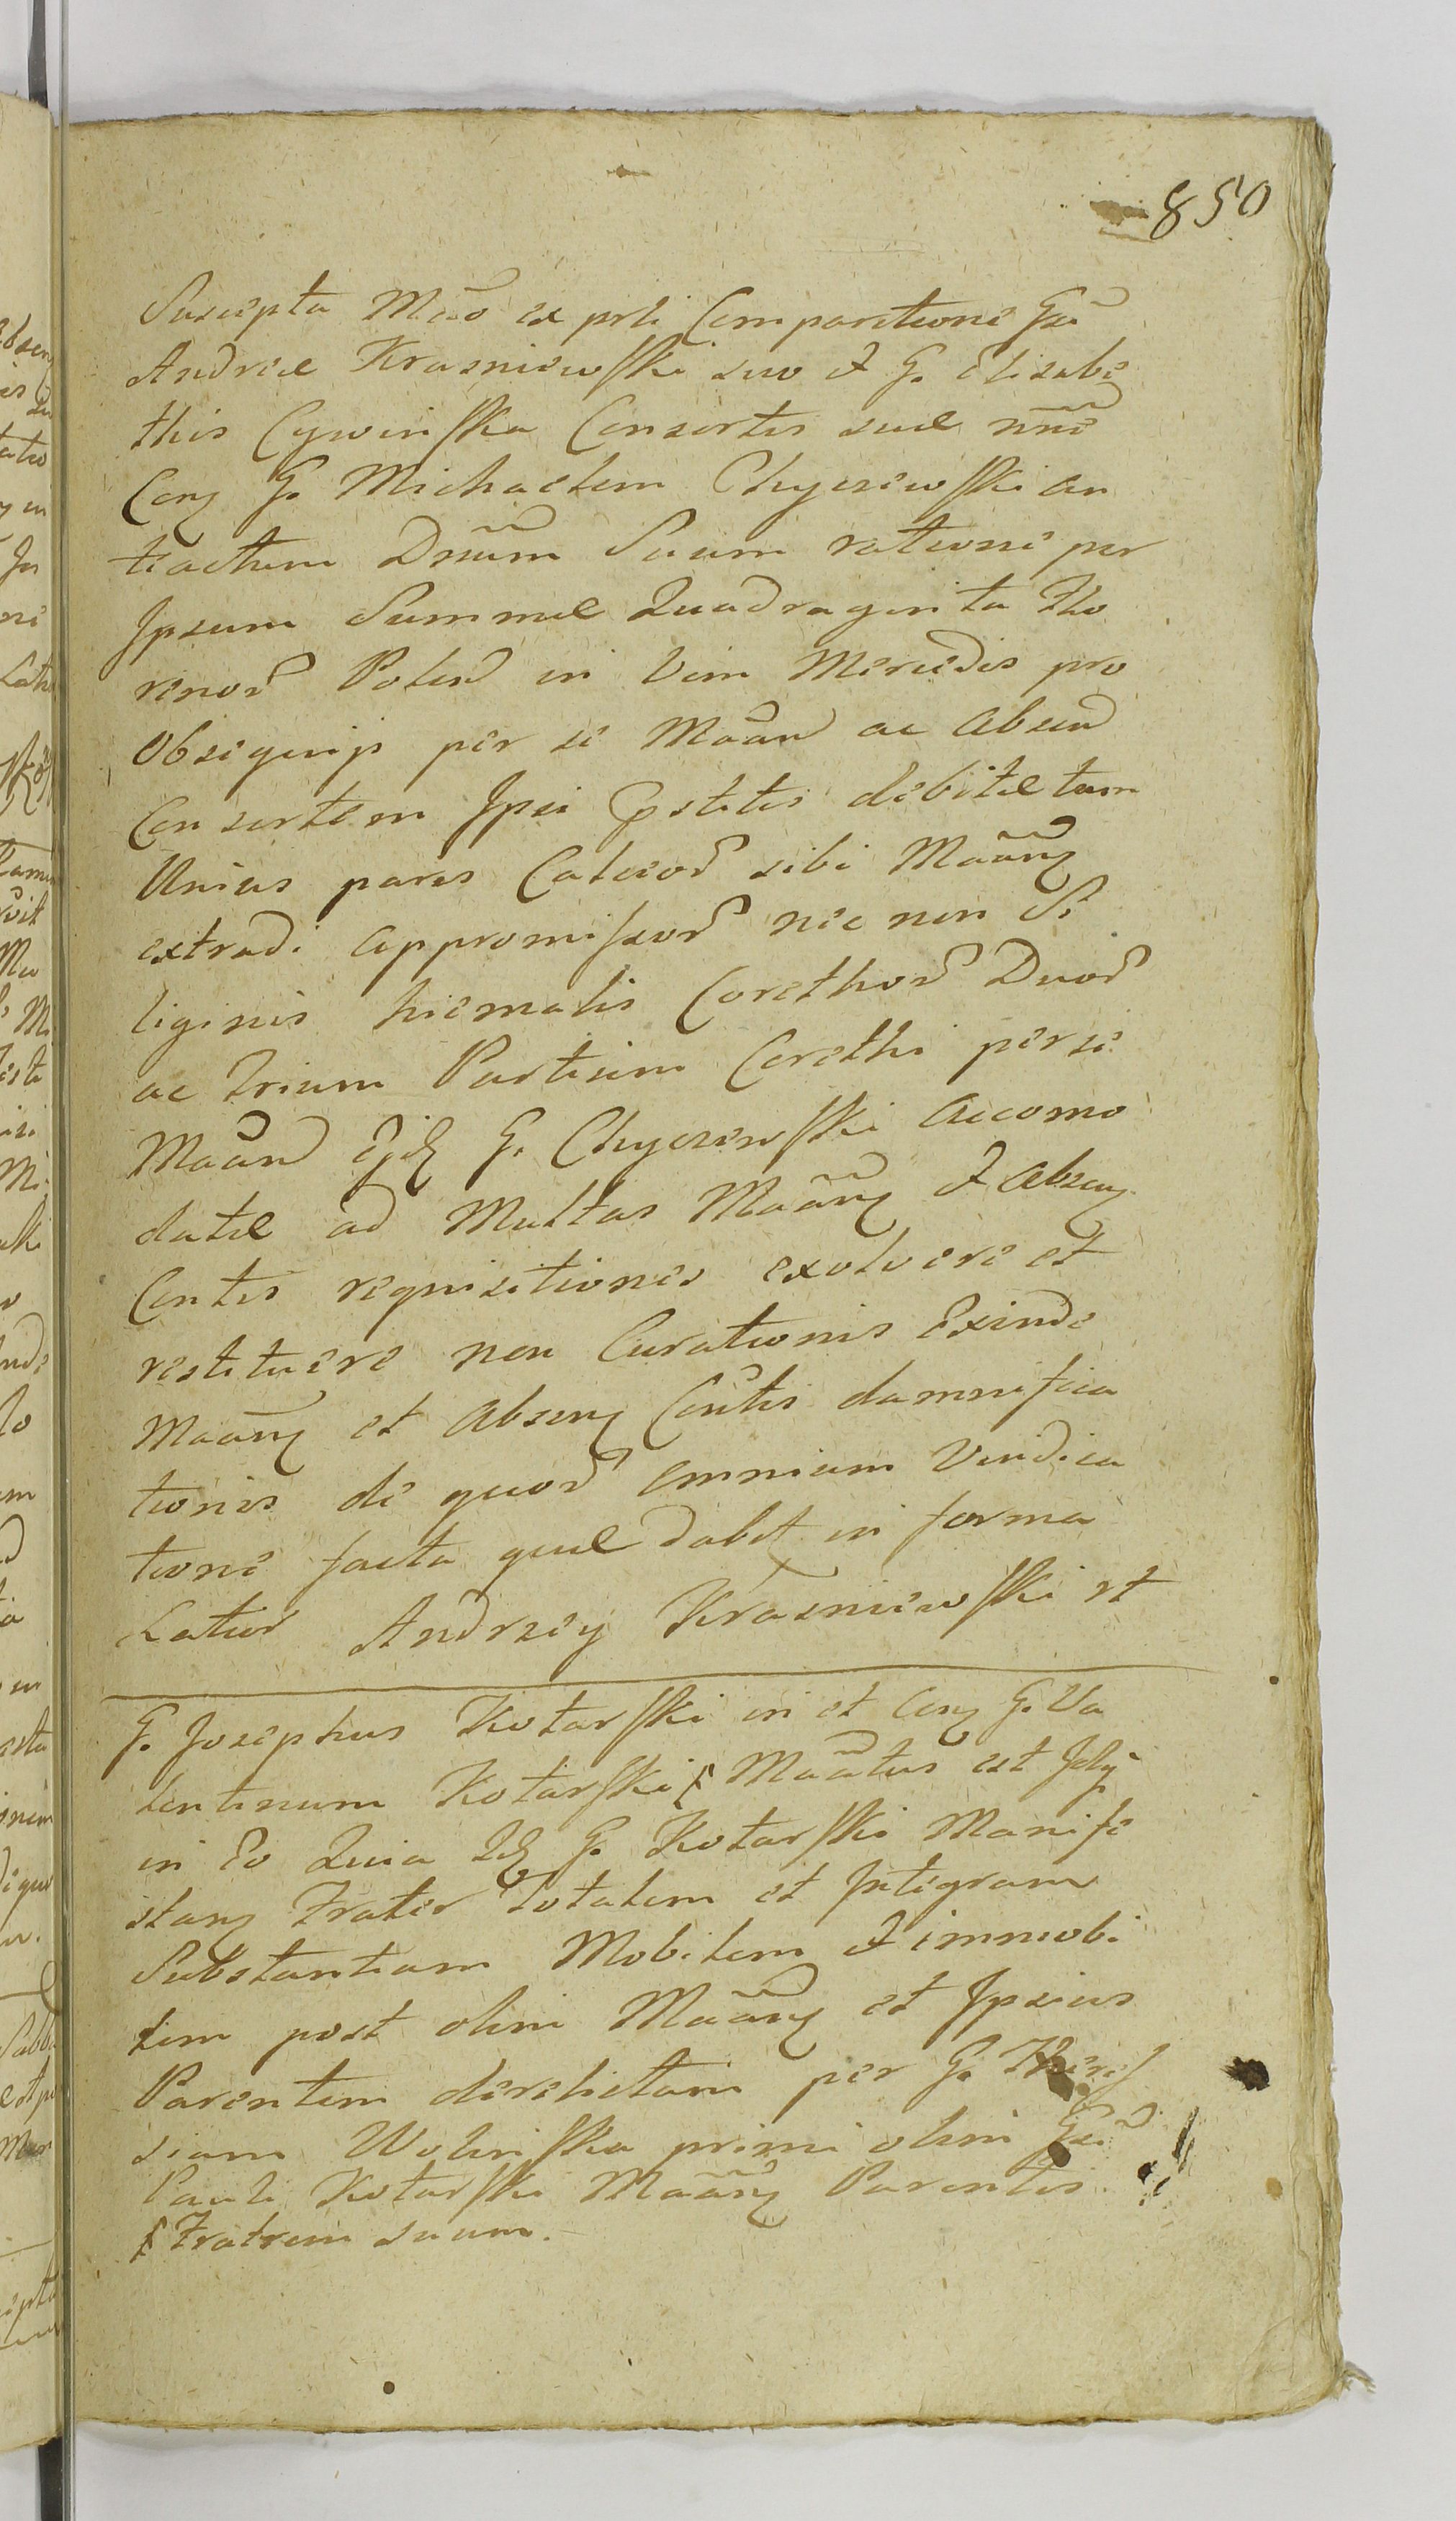 850
Suscepta Mãõ ex prti Comparitione Gsi
Andreæ Krasniewski suo & G. Elisabe
this Cywinska Consortis suæ nnẽ
Con̄ G. Michaelem Chyczewski an
tiactum Dnũm Suum ratione per
Ipsum Summæ Quadraginta Flo
renor Polen in Vim Mercedis pro
Obsequijs per se Mãan ac Absen
Consortem Ipsi pstitis debitæ tum
Unius paris Calceor sibi Mãan
extradi appromissor nec non Si
liginis hiemalis Corethor Duor
ac Trium Partium Corethi per se
Mãan G. Chyczewski Accomo
datæ ad Multas Mãan & Absen
Contis requisitiones exolvere et
restituere non Curationis Exinde
Mãan et Absen Contis damnifica
tionis de quor omnium Vindica
tione facta quæ dabit in forma
Latior Andrzey Krasniewski rt
G. Josephus Kotarski in et Con G. Va
lentinum Kotarski Mãatus est
in Eo Quia G. Kotarski Manife
stan Frater Totalem et Integram
Substantiam Mobilem & immobi
lem post olim Mãan et Ipsius
Parentem derelictam per G.
siam Wolinska primi olim Gsi
Pauli Kotarski Mãan Parentis
Fratrem suum.